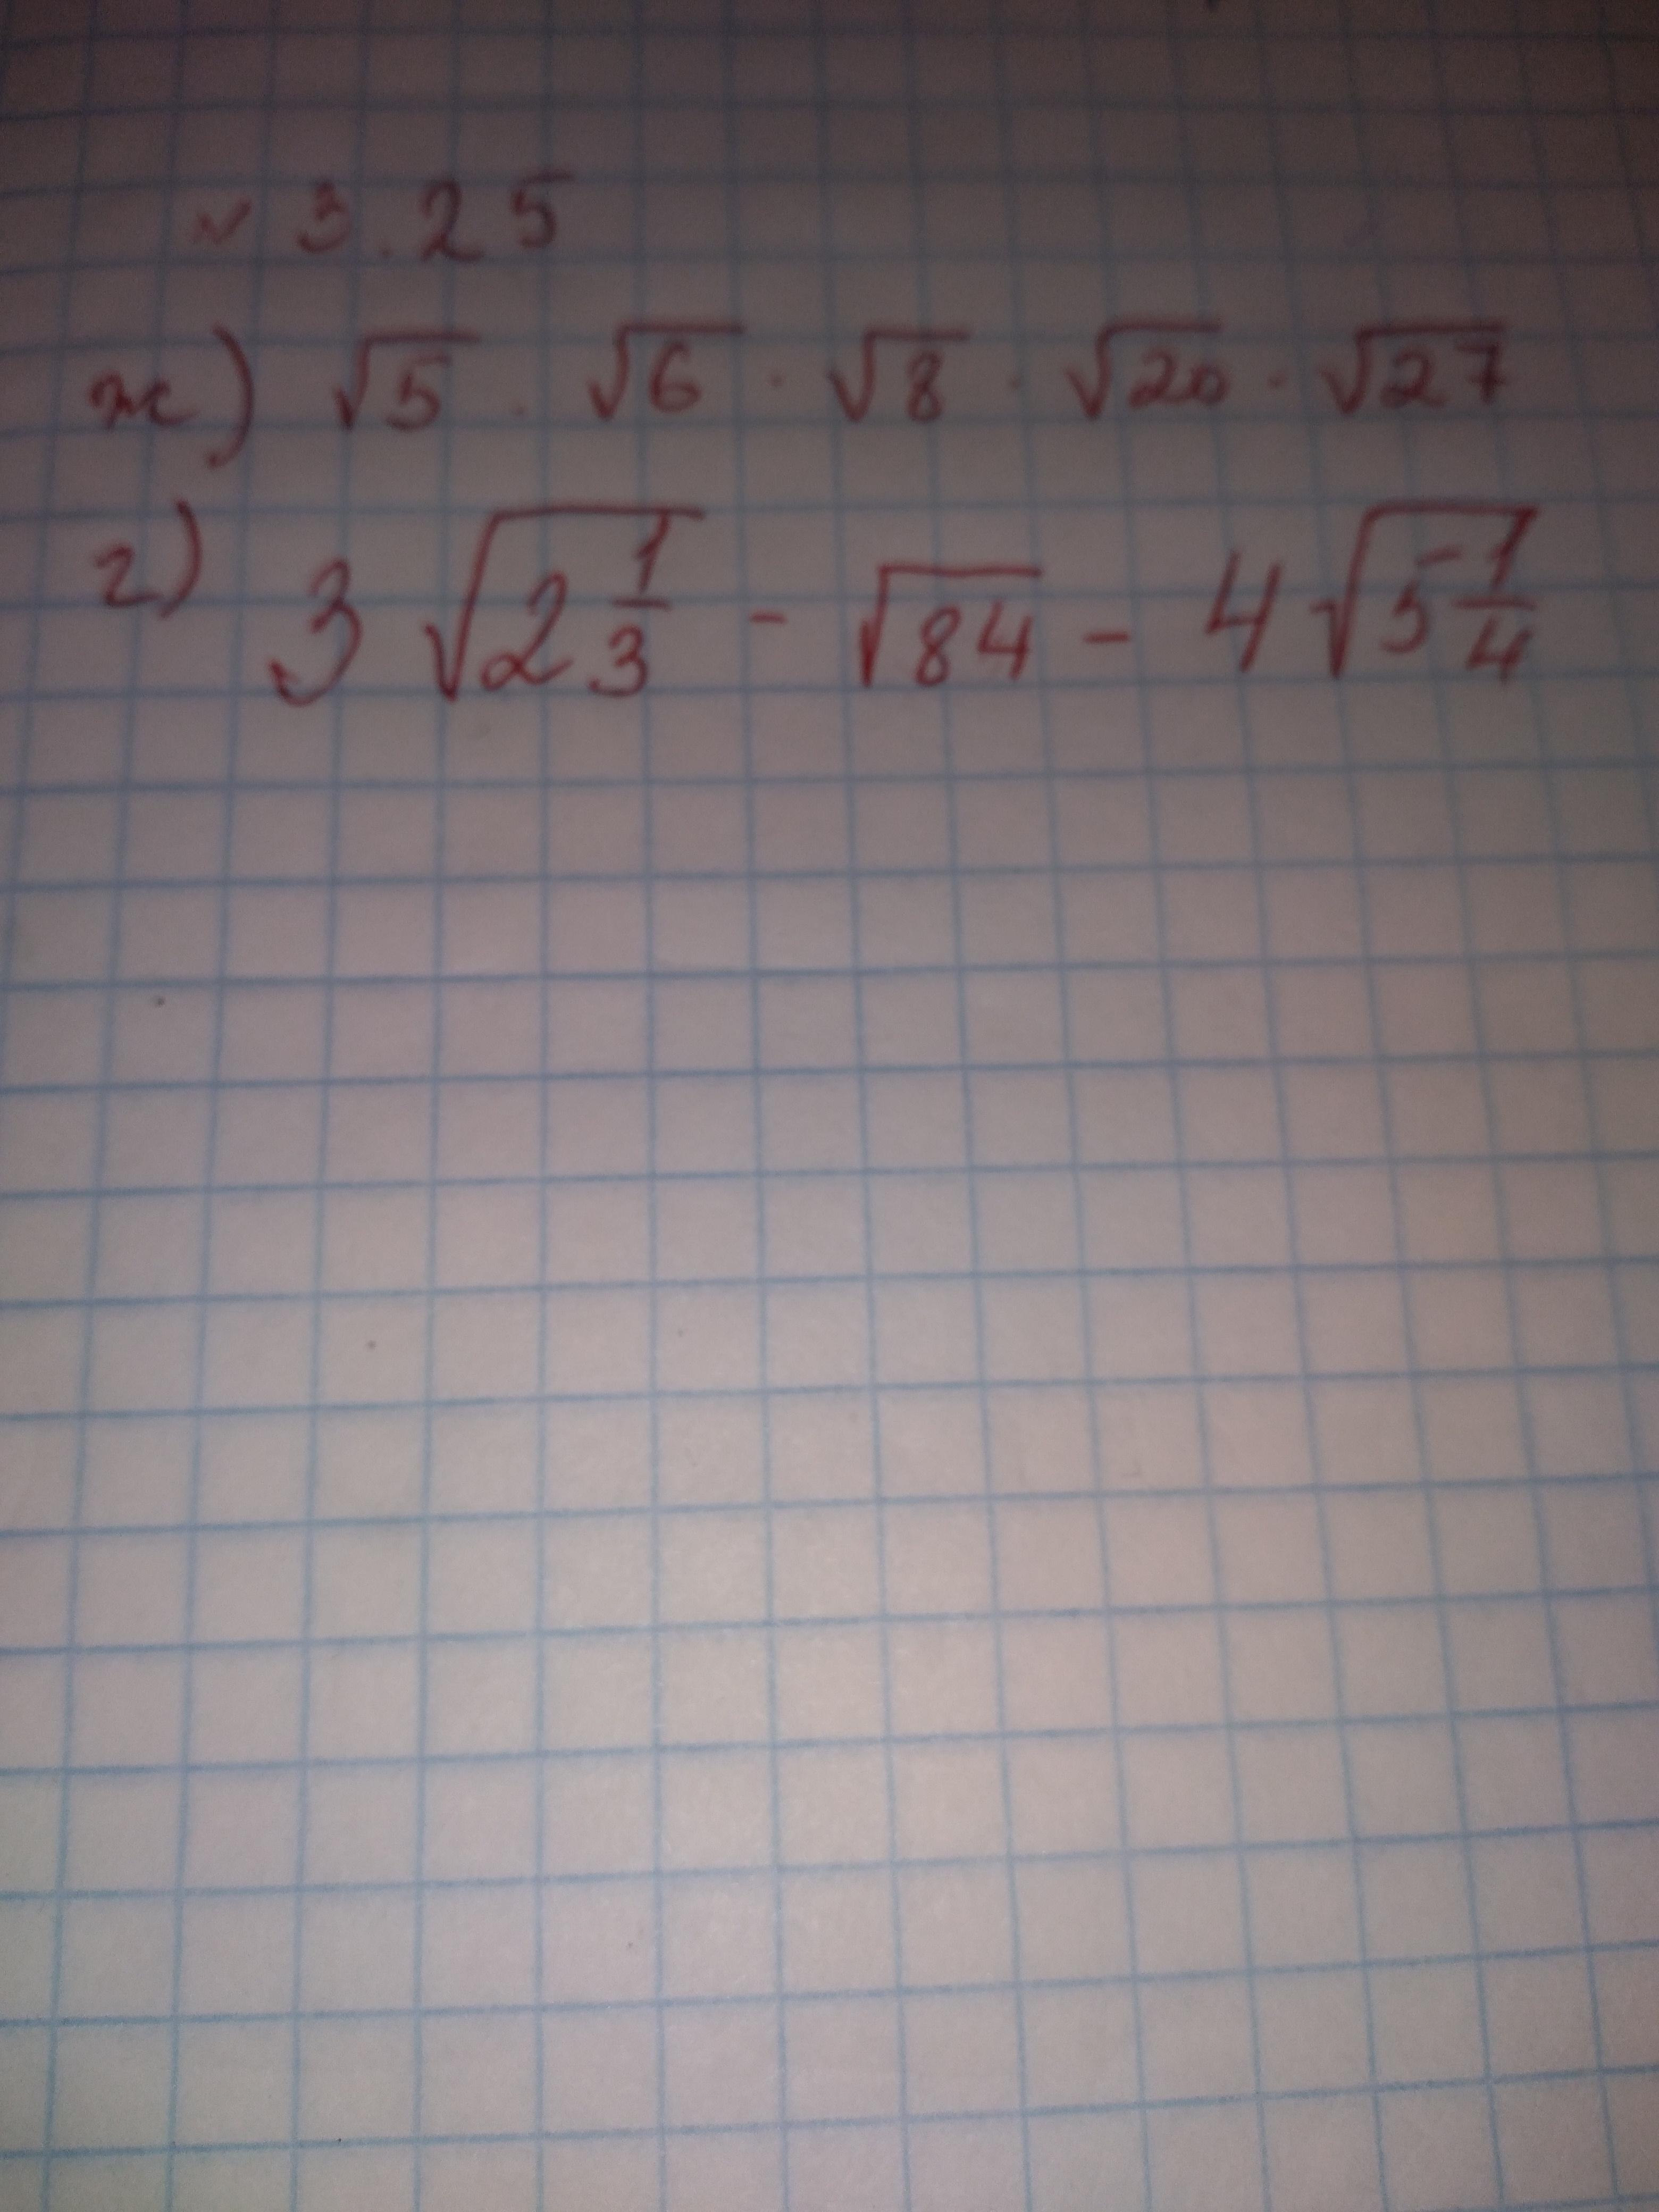 № 3.25
ж) √5 · √6 · √8 · √20 · √27
г) 3√2 1/3 - √84 - 4√5 1/4